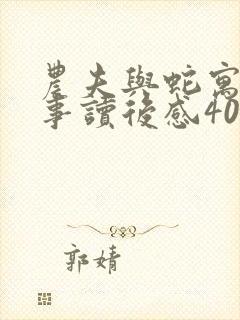 農夫與蛇寓
事讀後感40
郭婧